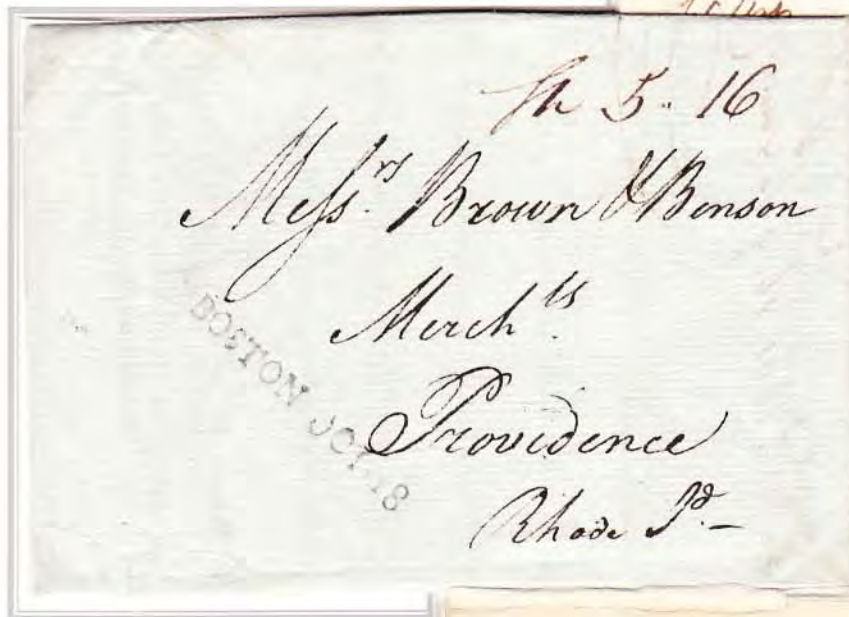 Sh 5.. 16
Messrs. Brown & Benson
Merchts.
Providence
Rhode Id. —
BOSTON
18